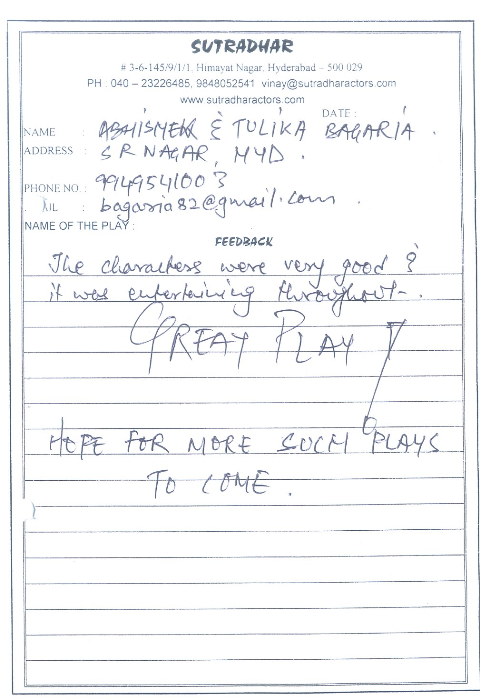 SUTRADHAR
# 3-6-145/9/1/1, Himayat Nagar, Hyderabad – 500 029
PH : 040 – 23226485, 9848052541 vinay@sutradharactors.com
www.sutradharactors.com
DATE :
NAME : ABHISHEK & TULIKA BAGARIA .
ADDRESS : S R NAGAR, HYD .
PHONE NO. : 9949541003
IL : bagaria82@gmail.com .
NAME OF THE PLAY :
FEEDBACK
The characters were very good &
it was entertaining throughout.
GREAT PLAY !
HOPE FOR MORE SUCH PLAYS
TO COME .